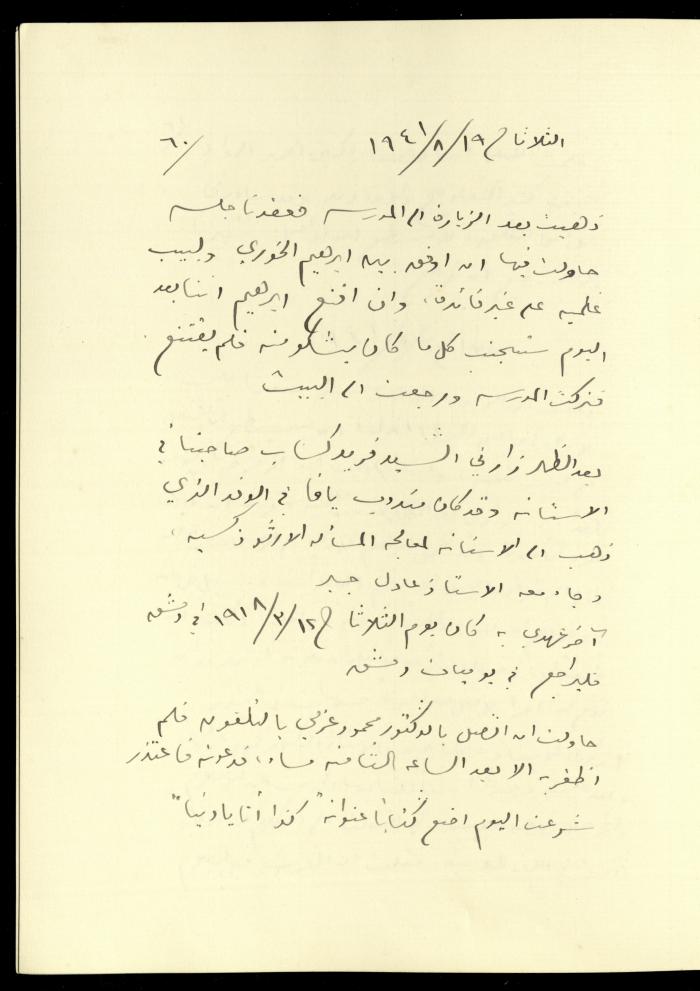 الثلاثا في ١٩/٨/١٩٤١
٦٠/
ذهبت بعد الزيارة الى المدرسه فعقدنا جلسه
حاولت فيها ان اوفق بين ابرهيم الخوري ولبيب
غلميه على غير فائدة، وان اقنع ابرهيم اننا بعد
اليوم سنتجنب كل ما كان يشكو منه فلم يقتنع.
فتركت المدرسه ورجعت الى البيت
بعد الظهر زارني السيد فريد كساب صاحبنا في
الاستانه وقد كان مندوب يافا في الوفد الذي
ذهب الى الاستانه لمعالجه المسأله الارثوذكسيه،
وجاء معه الاستاذ عادل جبر
آخر عهدي به كان يوم الثلاثا في ١٢/٣/١٩١٨ في دمشق
فليراجع في يوميات دمشق
حاولت ان اتصل بالدكتور محمود عزمي بالتلفون فلم
اظفر به الا بعد الساعه الثامنه مساء، فدعوته فاعتذر
شرعت اليوم اضع كتابا عنوانه "كذا أنا يا دنيا"